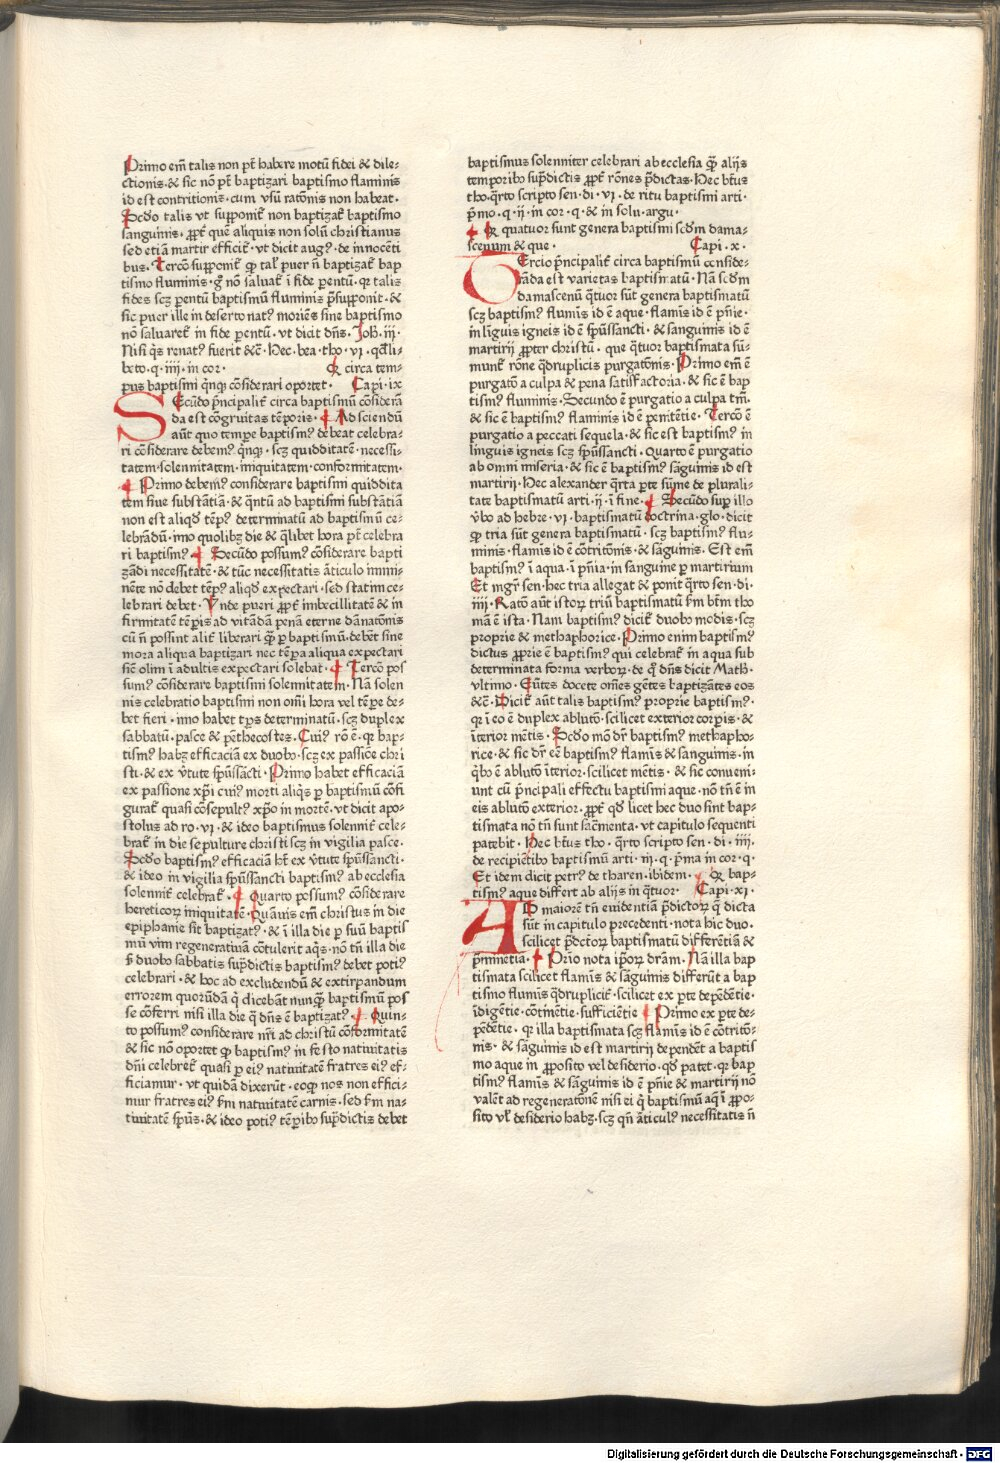 Primo em̄ talis non pt̄ habere motū fidei & dile-
ctionis·& sic nō pt̄ baptizari baptismo flaminis
id est contritionis·cum vsū rationis non habeat·
Scđo talis vt supponit̄ non baptizat̄ baptismo
sanguinis·ꝓpt̄ que aliquis non solū christianus
sed etiā martir efficit̄·vt dicit augꝰ·de innocēti
bus·Tercō supponit̄ ꝙ tał puer n̄ baptizat̄ bap
tismo fluminis·gͦ nō saluat̄ ī fide pentū·qꝛ talis
fides scꝫ pentū baptismū fluminis p̄supponit·&
sic puer ille in deserto natꝰ moriēs sine baptismo
nō saluaret̄ in fide pentū·vt dicit dn̄s·Joh̄·iij·
Nisi qͥs renatꝰ fuerit &c̄·Hec·bea·tho·vi·qđli-
beto·q·iiij·in cor·
Qꝛ circa tem-
pus baptismi qͥnqꝫ cōsiderari oportet· Capi·ix
SEcūdo pͥncipalit̄ circa baptismū cōsiderā
da est cōgruitas tēporis·Ad sciendū
aūt quo tempe baptismꝰ debeat celebra-
ri cōsiderare debemꝰ qͥnqꝫ·scꝫ quidditatē·necessi-
tatem·solennitatem·iniquitatem·conformitatem·
Primo debemꝰ considerare baptismi quiddita
tem siue substātiā·& qͣntū ad baptismi substātiā
non est aliqđ tēpꝰ determinatū ad baptismū ce-
lebrādū·imo quolibꝫ die & qͣlibet hora pt̄ celebra
ri baptismꝰ·Secūdo possumꝰ cōsiderare bapti
zādi necessitatē·& tūc necessitatis āticulo immi-
nēte nō debet tēpꝰ aliqđ expectari·sed statim ce-
lebrari debet·Vnde pueri ꝓpt̄ imbecillitatē & in
firmitatē tēp̄is ad vitādā penā eterne dānatōnis
cū n̄ possint alit̄ liberari qͣꝫ p baptismū·debēt sine
mora aliqua baptizari nec tēpa aliqua expectari
sicut olim ī adultis expectari solebat·Tercō pos
sumꝰ cōsiderare baptismi solennitatem·Nā solen
nis celebratio baptismi non om̄i hora vel tēpe de-
bet fieri·imo habet tp̄s determinatū·scꝫ duplex
sabbatū·pasce & pēthecostes·Cuiꝰ rō ē·qꝛ bap-
tismꝰ habꝫ efficaciā ex duobꝰ·scꝫ ex passiōe chri
sti·& ex v̄tute spūssācti·Primo habet efficaciā
ex passione xp̄i cuiꝰ morti aliqͥs p baptismū cōfi
gurat̄ quasi cōsepultꝰ xp̄o in mortē·vt dicit apo-
stolus ad ro·vi·& ideo baptismus solennit̄ cele-
brat̄ in die sepulture christi scꝫ in vigilia pasce·
Scđo baptismꝰ efficaciā hꝫ ex v̄tute spūssancti·
& ideo in vigilia spūssancti baptismꝰ ab ecclesia
solennit̄ celebrat̄·Quarto possumꝰ cōsiderare
hereticoꝝ iniquitatē·Quāuis em̄ christus in die
epiphanie sit baptizatꝰ·& ī illa die p suū baptis
mū vim regeneratiuā cōtulerit aqͥs·nō tn̄ illa die
s̄ duobꝰ sabbatis supͣdictis baptismꝰ debet potiꝰ
celebrari·& hoc ad excludendū & extirpandum
errorem quorūdā qͥ dicebāt nunqͣꝫ baptismū pos
se cōferri nisi illa die qͣ dn̄s ē baptizatꝰ·Quin-
to possumꝰ considerare nr̄i ad christū cōformitatē
& sic nō oportet ꝙ baptismꝰ in festo natiuitatis
dn̄i celebret̄ quasi p eiꝰ natiuitatē fratres eiꝰ ef-
ficiamur·vt quidā dixerūt·eoqꝫ nos non effici-
mur fratres eiꝰ s̄m natiuitatē carnis·sed s̄m na-
tiuitatē spūs·& ideo potiꝰ tēpibꝰ supͣdictis debet
baptismus solenniter celebrari ab ecclesia qͣꝫ alijs
temporibꝰ supͣdictis ꝓpt̄ rōnes p̄dictas·Hec btūs
tho·qͣrto scripto sen·di·vi·de ritu baptismi arti·
pͥmo·q·ij·in cor·q·& in solu·argu·
Qꝛ quatuor sunt genera baptismi scđm dama-
scenum & que· Capi·x·
TErcio pͥncipalit̄ circa baptismū conside-
rāda est varietas baptismatū·Nā scđm
damascenū qͣtuor sūt genera baptismatū
scꝫ baptismꝰ fluminis id ē aque·flaminis id ē pn̄ie·
in linguis igneis id ē spūssancti·& sanguinis id ē
martirij ꝓpter christū·que qͣtuor baptismata su-
munt̄ rōne qͣdruplicis purgatōnis·Primo em̄ ē
purgatō a culpa & pena satisfactoria·& sic ē bap
tismꝰ fluminis·Secundo ē purgatio a culpa tm̄·
& sic ē baptismꝰ flaminis id ē penitētie·Tercō ē
purgatio a peccati sequela·& sic est baptismꝰ in
linguis igneis scꝫ spūssancti·Quarto ē purgatio
ab omni miseria·& sic ē baptismꝰ sāguinis id est
martirij·Hec alexander qͣrta pte sum̄e de plurali-
tate baptismatū arti·ij·ī fine·Secūdo sup illo
v̄bo ad hebre·vi·baptismatū doctrina·glo·dicit
ꝙ tria sūt genera baptismatū·scꝫ baptismꝰ flu-
minis·flaminis id ē cōtritōnis·& sāguinis·Est em̄
baptismꝰ ī aqua·ī pn̄ia·in sanguine p martirium
Et mgr̄ sen·hec tria allegat & ponit qͣrto sen·di·
iiij·Ratō aūt istoꝝ triū baptismatū s̄m btm̄ tho
mā ē ista·Nam baptismꝰ dicit̄ duobꝰ modis·scꝫ
proprie & methaphorice·Primo enim baptismꝰ
dictus ꝓprie ē baptismꝰ qui celebrat̄ in aqua sub
determinata forma verboꝝ·de qͦ dn̄s dicit Math·
vltimo·Eūtes docete om̄es gētes baptizātes eos
&c̄·Dicit̄ aūt talis baptismꝰ proprie baptismꝰ·
qꝛ ī eo ē duplex ablutō·scilicet exterior corpis·&
īterior mētis·Scđo mō dr̄ baptismꝰ methapho-
rice·& sic dr̄ ee baptismꝰ flaminis & sanguinis·in
qͥbꝰ ē ablutō īterior·scilicet mētis·& sic conueni-
unt cū pͥncipali effectu baptismi aque·nō tn̄ ē in
eis ablutō exterior·ꝓpt̄ qđ licet hec duo sint bap-
tismata nō tn̄ sunt sacͣmenta·vt capitulo sequenti
patebit·Hec btūs tho·qͣrto scripto sen·di·iiij·
de recipiētibꝰ baptismū arti·iij·q·pͥma in cor·q·
Et idem dicit petrꝰ de tharen·ibidem·Qꝛ bap-
tismꝰ aque differt ab alijs in qͣtuor· Capi·xi·
AD maiorē tn̄ euidentiā p̄dictoꝝ qͣ dicta
sūt in capitulo precedenti·nota hic duo·
scilicet p̄dictoꝝ baptismatū differētiā &
p̄minētia·Pͥmo nota ip̄oꝝ dr̄am·Nā illa bap
tismata scilicet flaminis & sāguinis differūt a bap
tismo fluminis qͣdruplicit̄·scilicet ex pte depēdētie·
īdigētie·cōtinētie·sufficiētie·Primo ex pte de-
pēdētie·qꝛ illa baptismata scꝫ flaminis id ē cōtritō-
nis·& sāguinis id est martirij dependēt a baptis
mo aque in ꝓposito vel desiderio·qđ patet·qꝛ bap
tismꝰ flaminis & sāguinis id ē pn̄ie & martirij nō
valēt ad regeneratōnē nisi ei qͥ baptismū aq̄ ī ꝓpo-
sito vł desiderio habꝫ·scꝫ qn̄ āticulꝰ necessitatis n̄
Digitalisierung gefördert durch die Deutsche Forschungsgemeinschaft - DFG